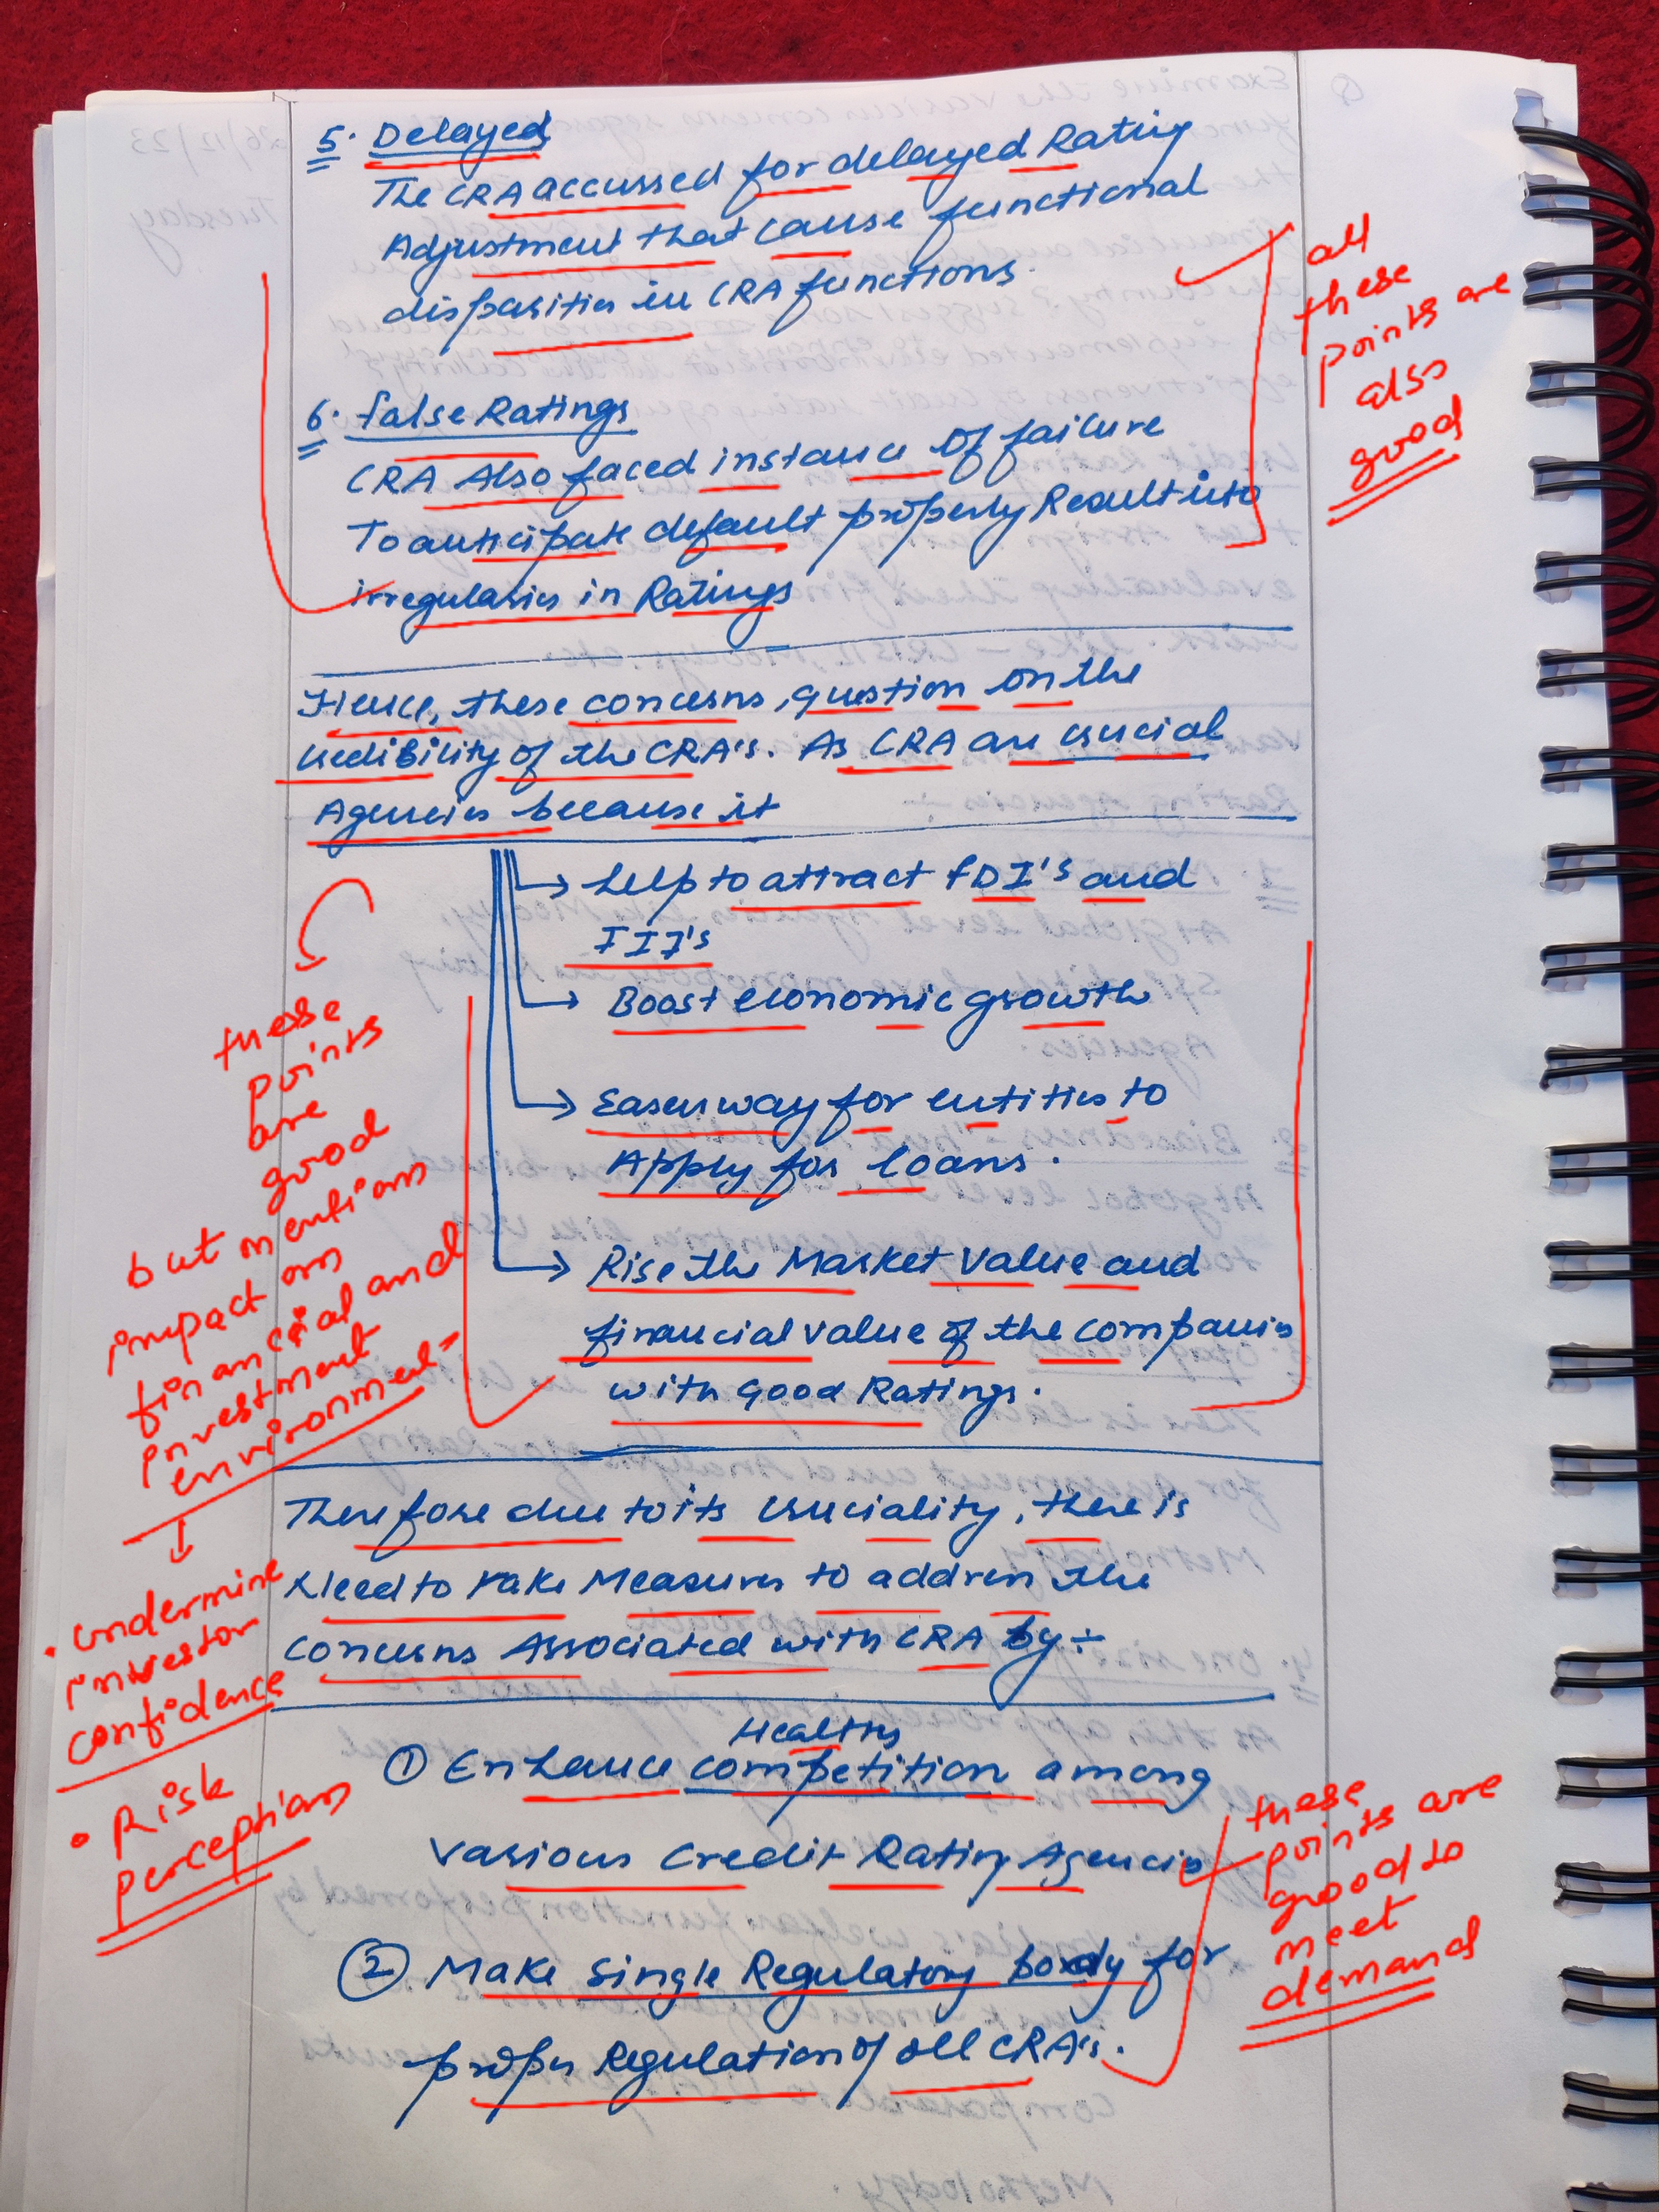 5. Delayed
The CRA accussed for delayed Rating
Adjustment that cause functional
disparities in CRA functions.
all
these
points are
also
good
6. False Ratings
CRA Also faced instance of failure
To anticipate default properly Result into
irregularies in Ratings
Hence, these concerns, question on the
credibility of the CRA's. As CRA are crucial
Agencies because it
→ help to attract FDI's and
FII's
→ Boost economic growth
→ Easier way for entities to
Apply for loans.
→ Rise the Market Value and
financial value of the companies
with Good Ratings.
these
points
are
good
but mention
impact on
financial and
investment
environment-
↓
• undermine
investor
confidence
• Risk
perceptions
Therefore due to its cruciality, there is
Need to take Measures to address the
concerns Associated with CRA by ÷
Healthy
① Enhance competition among
Various Credit Rating Agencies
② Make Single Regulatory body for
proper Regulation of all CRA's.
these
points are
good to
meet
demand